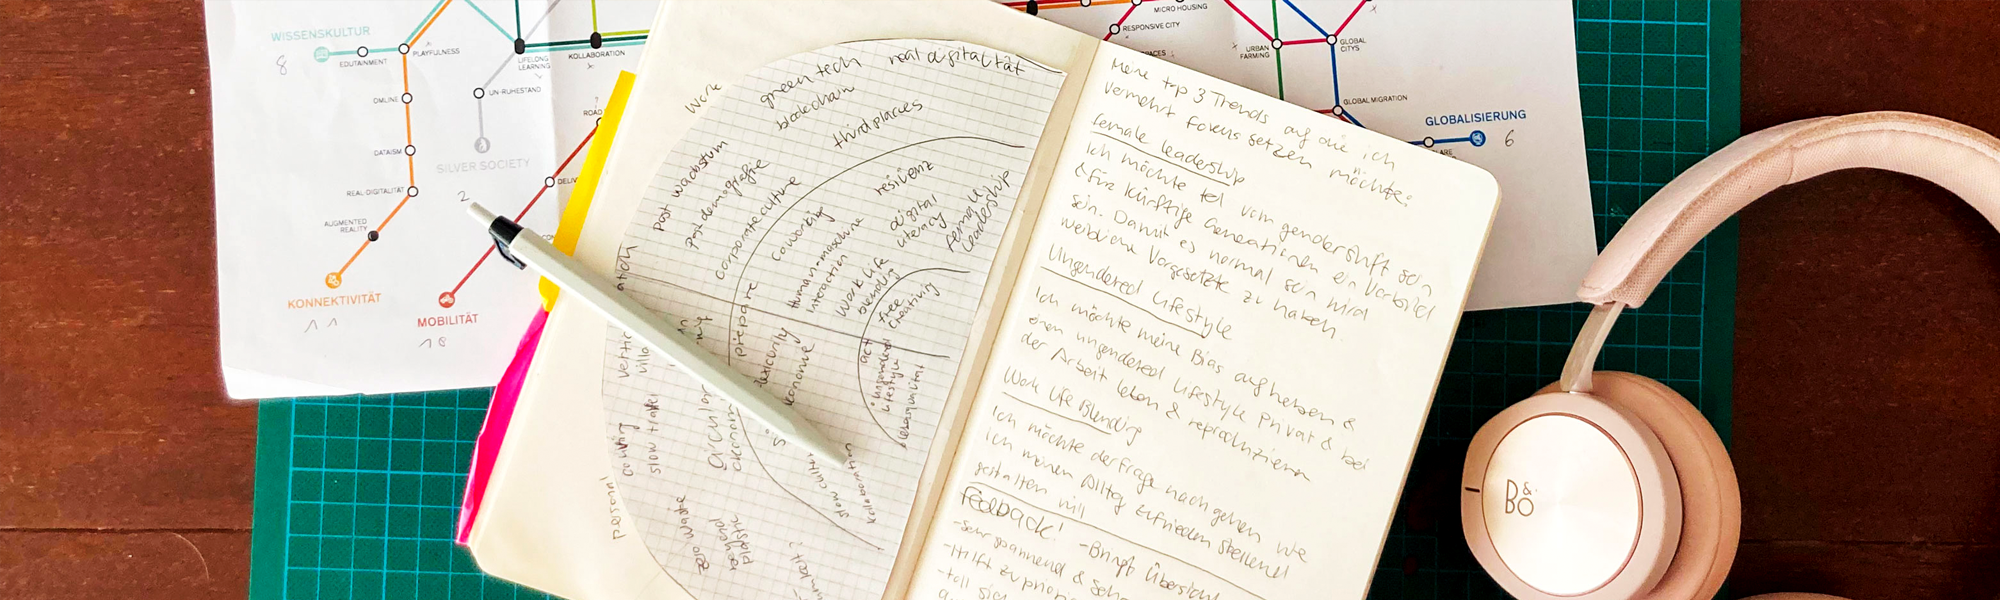 WISSENSKULTUR
8
EDUTAINMENT
PLAYFULNESS
LIFELONG
LEARNING
KOLLABORATION
OMLINE
UN-RUHESTAND
ROAD
DATAISM
SILVER SOCIETY
2
REAL-DIGITALITÄT
DELIV
AUGMENTED
REALITY
KONNEKTIVITÄT
11
MOBILITÄT
10
MICRO HOUSING
RESPONSIVE CITY
URBAN
FARMING
GLOBAL
CITYS
GLOBAL MIGRATION
GLOBALISIERUNG
6
Work
green tech
real digitalität
blockchain
third places
post wachstum
post demografie
corporate culture
coworking
resilienz
digital
literacy
female
leadership
human-maschine
interaction
work life
blending
free
creativity
prepare
act
ungendered
lifestyle
slow travel
zero waste
beyond
plastic
personal
Meine top 3 Trends auf die ich
vermehrt Fokus setzen möchte:
female leadership
Ich möchte teil vom gendershift sein
& für künftige Generationen ein Vorbild
sein. Damit es normal sein wird
weibliche Vorgesetzte zu haben.
Ungendered Lifestyle
Ich möchte meine Bias aufheben &
einen ungendered Lifestyle privat & bei
der Arbeit leben & reproduzieren
Work Life Blending
Ich möchte der Frage nachgehen wie
ich meinen Alltag zufrieden stellend
gestalten will
Feedback!
- Bringt Übersicht
- sehr spannend &
- Hilft zu
- toll sich
B&O